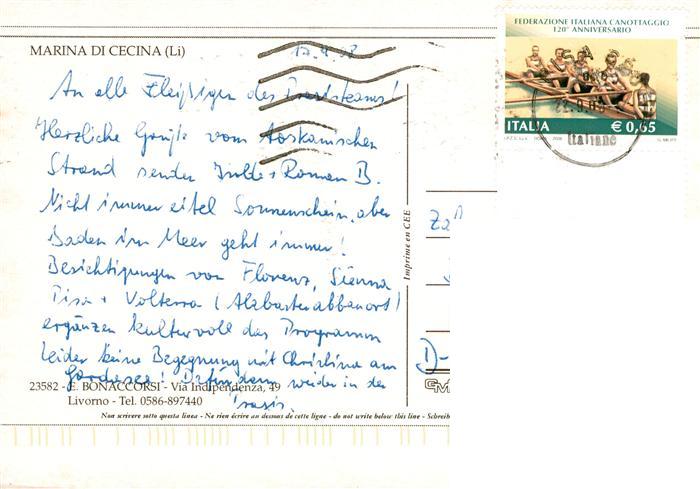 FEDERAZIONE ITALIANA CANOTTAGGIO
120° ANNIVERSARIO
ITALIA € 0,65
Italiane
MARINA DI CECINA (Li)
An alle Fleißigen des
Herzliche Grüße vom Toskanischen
Strand senden + Roman B.
Nicht immer eitel Sonnenschein, aber
Baden im Meer geht immer!
Besichtigungen von Florenz, Sienna
Pisa + Volterra (Alabasterabbauort)
ergänzen kulturvoll das Programm
leider keine Begegnung mit Christina am
Gardasee! Dafür dann wieder in der
Praxis.
Imprime en CEE
D-
23582 - E. BONACCORSI - Via Indipendenza, 49
Livorno - Tel. 0586-897440
Non scrivere sotto questa linea - Ne rien écrire an dessous de cette ligne - do not write below this line - Schreib